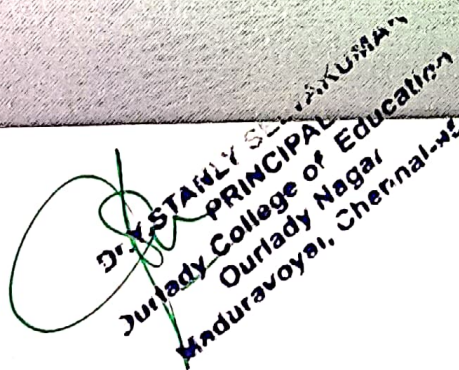 Dr.Y.STANLY
PRINCIPAL
Ourlady College of Education
Ourlady Nagar
Maduravoyal, Chennai-